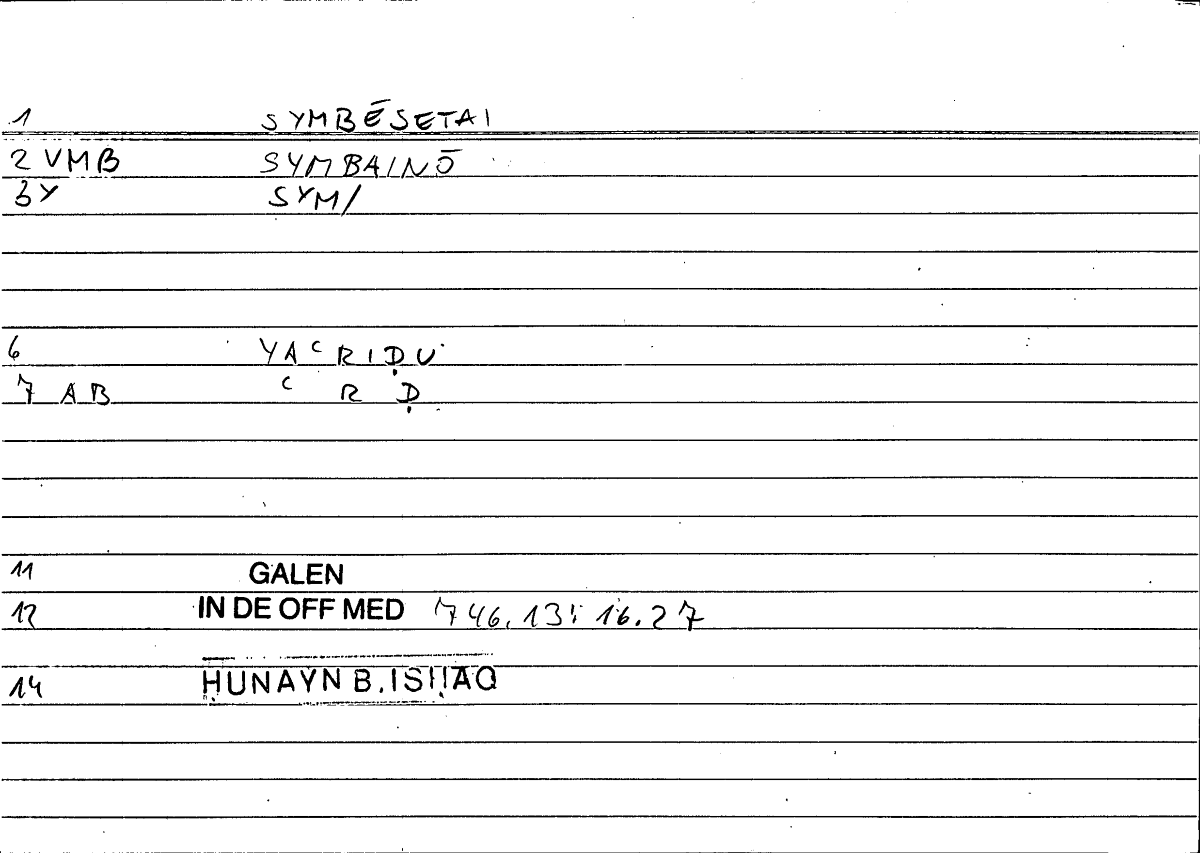 1 SYMBĒSETAI
2 VMB SYMBAINŌ
3 Y SYM/
6 YAʿRIḌU
7 AB ʿ R Ḍ
11 GALEN
12 IN DE OFF MED 746.13; 16.27
14 ḤUNAYN B. ISḤĀQ